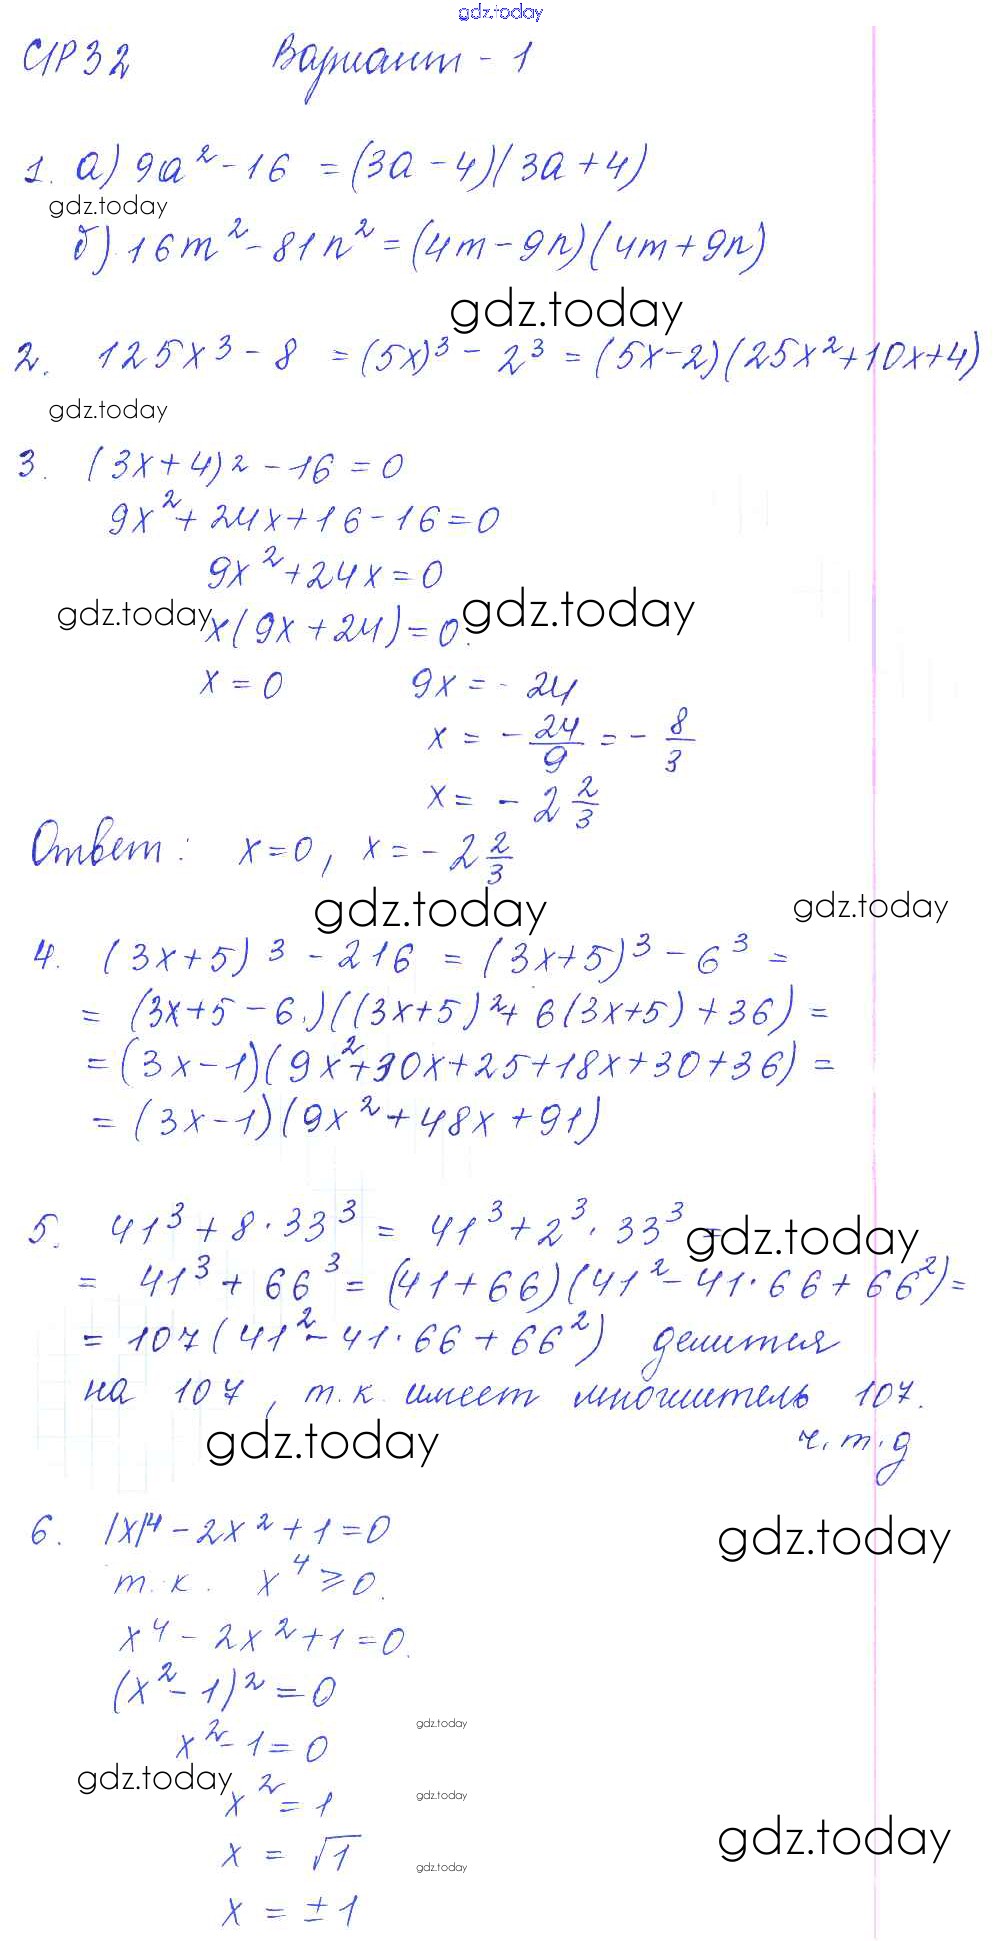 gdz.today
С/Р 32 Вариант - 1
1. а) 9a² - 16 = (3a - 4)(3a + 4)
gdz.today
б) 16m² - 81n² = (4m - 9n)(4m + 9n)
gdz.today
2. 125x³ - 8 = (5x)³ - 2³ = (5x - 2)(25x² + 10x + 4)
gdz.today
3. (3x + 4)² - 16 = 0
9x² + 24x + 16 - 16 = 0
9x² + 24x = 0
gdz.today gdz.today
x(9x + 24) = 0.
x = 0 9x = - 24
x = - 24/9 = - 8/3
x = - 2 2/3
Ответ: x = 0, x = - 2 2/3
gdz.today gdz.today
4. (3x + 5)³ - 216 = (3x + 5)³ - 6³ =
= (3x + 5 - 6)((3x + 5)² + 6(3x + 5) + 36) =
= (3x - 1)(9x² + 30x + 25 + 18x + 30 + 36) =
= (3x - 1)(9x² + 48x + 91)
5. 41³ + 8 · 33³ = 41³ + 2³ · 33³ =
gdz.today
= 41³ + 66³ = (41 + 66)(41² - 41 · 66 + 66²) =
= 107(41² - 41 · 66 + 66²) делится
на 107, т.к. имеет множитель 107.
gdz.today ч.т.д
6. |x|⁴ - 2x² + 1 = 0
gdz.today
т.к. x⁴ ⩾ 0.
x⁴ - 2x² + 1 = 0.
(x² - 1)² = 0
gdz.today
x² - 1 = 0
gdz.today
x² = 1
gdz.today
gdz.today
x = √1
gdz.today
x = ± 1